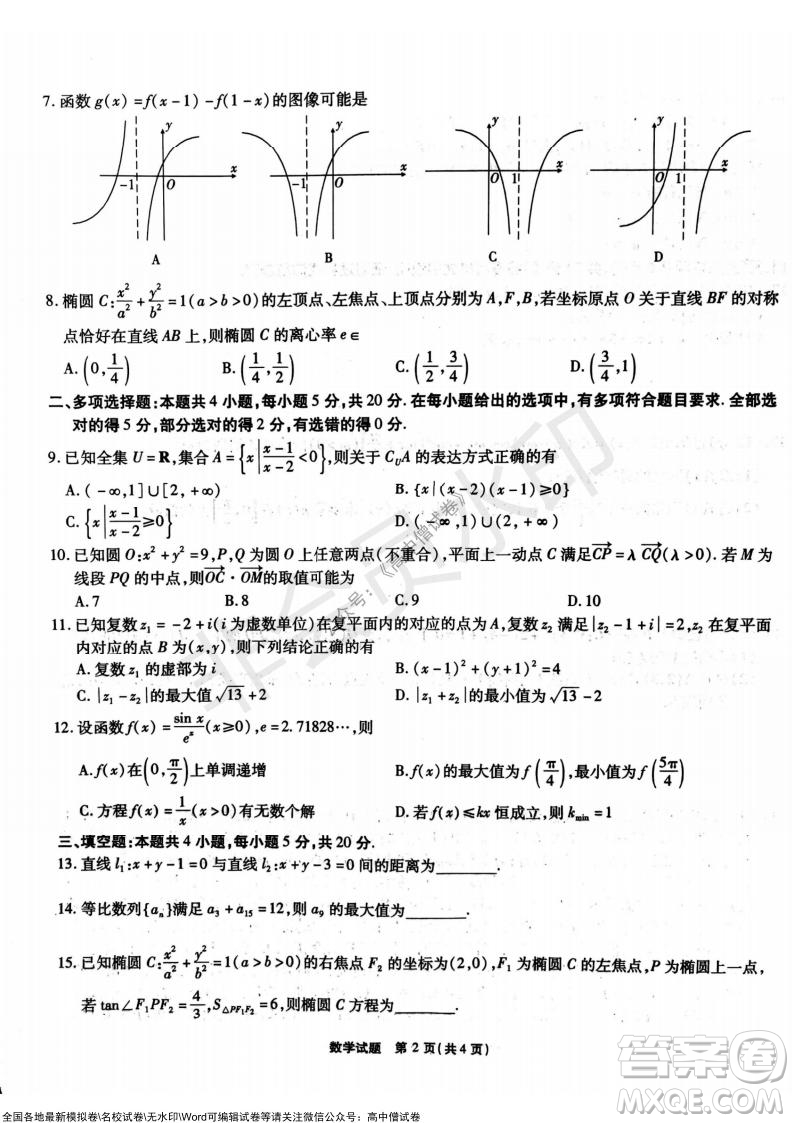 7. 函数 g(x) =f(x-1) -f(1-x)的图像可能是
y y y y
x x x x
-1 O -1 O O 1 O 1
A B C D
8. 椭圆 C: x²/a² + y²/b² =1(a>b>0)的左顶点、左焦点、上顶点分别为 A,F,B,若坐标原点 O 关于直线 BF 的对称
点恰好在直线 AB 上,则椭圆 C 的离心率 e∈
A. (0, 1/4) B. (1/4, 1/2) C. (1/2, 3/4) D. (3/4, 1)
二、多项选择题:本题共 4 小题,每小题 5 分,共 20 分. 在每小题给出的选项中,有多项符合题目要求. 全部选
对的得 5 分,部分选对的得 2 分,有选错的得 0 分.
9. 已知全集 U=R,集合 A={x | (x-1)/(x-2) <0},则关于 ∁UA 的表达方式正确的有
A. (-∞,1]∪[2,+∞) B. {x|(x-2)(x-1)≥0}
C. {x | (x-1)/(x-2) ≥0} D. (-∞,1)∪(2,+∞)
10. 已知圆 O:x²+y²=9,P,Q 为圆 O 上任意两点(不重合),平面上一动点 C 满足CP=λ CQ(λ>0). 若 M 为
线段 PQ 的中点,则OC·OM的取值可能为
A. 7 B. 8 C. 9 D. 10
11. 已知复数 z₁=-2+i(i 为虚数单位)在复平面内的对应的点为 A,复数 z₂ 满足|z₂-1+i|=2,z₂ 在复平面
内对应的点 B 为(x,y),则下列结论正确的有
A. 复数 z₁ 的虚部为 i B. (x-1)²+(y+1)²=4
C. |z₁-z₂|的最大值√13+2 D. |z₁+z₂|的最小值为√13-2
12. 设函数 f(x)= sin x/eˣ (x≥0),e=2.71828…,则
A. f(x)在(0, π/2)上单调递增 B. f(x)的最大值为 f(π/4),最小值为 f(5π/4)
C. 方程 f(x)= 1/x (x>0)有无数个解 D. 若 f(x)≤kx 恒成立,则 kmin=1
三、填空题:本题共 4 小题,每小题 5 分,共 20 分.
13. 直线 l₁:x+y-1=0 与直线 l₂:x+y-3=0 间的距离为________.
14. 等比数列{aₙ}满足 a₃+a₁₅=12,则 a₉ 的最大值为________.
15. 已知椭圆 C: x²/a² + y²/b² =1(a>b>0)的右焦点 F₂ 的坐标为(2,0),F₁ 为椭圆 C 的左焦点,P 为椭圆上一点,
若 tan∠F₁PF₂= 4/3, S△PF₁F₂=6,则椭圆 C 方程为________.
数学试题 第 2 页(共 4 页)
非会员水印
公众号:《高中僧试卷》
全国各地最新模拟卷\名校试卷\无水印\Word可编辑试卷等请关注微信公众号:高中僧试卷